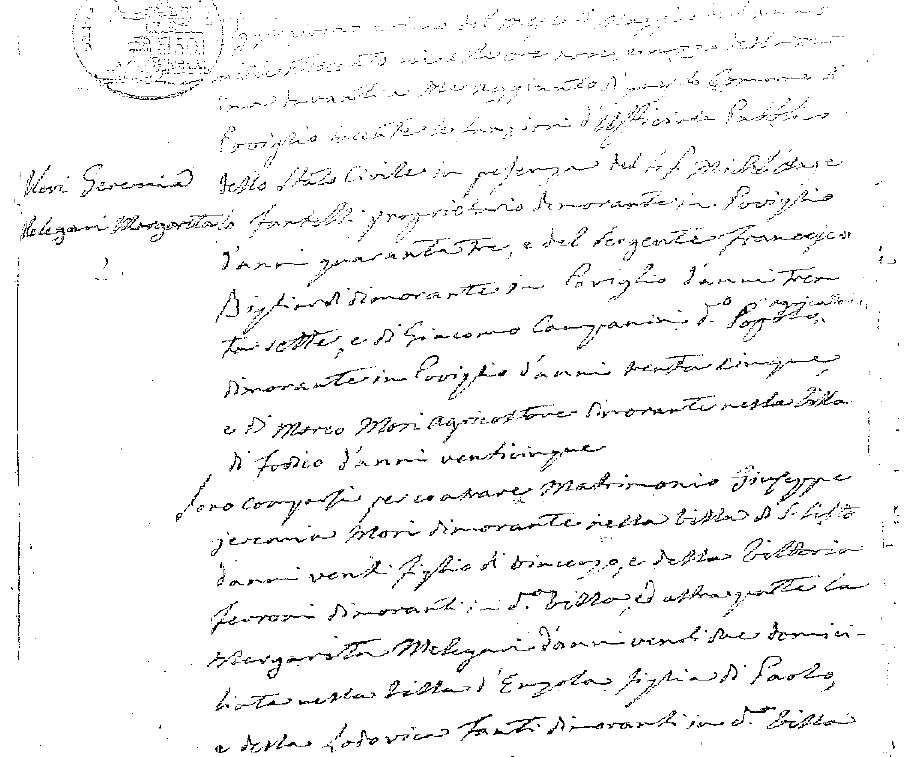 giorno del mese di Maggio dell'anno
mille ottocento
davanti a Me Aggiunto di per lo Comune di
Poviglio facente le funzioni d'Uffiziale Pubblico
Mori Geremia
Melegari Margarita
2.
dello Stato Civile in presenza del Sig. Michel'Ange
lo Fantelli proprietario dimorante in Poviglio
d'anni quarantatre, e del Sergente Francesco
Bigliardi dimorante in Poviglio d'anni tren
ta sette, e di Giacomo Campanini d.º Popolo, agricoltore
dimorante in Poviglio d'anni trenta cinque
e di Marco Mori Agricoltore dimorante nella Villa
di Fodico d'anni venticinque
Sono comparsi per contrare Matrimonio Giuseppe
Jeremia Mori dimorante nella Villa di S. Sisto
d'anni venti figlio di Vincenzo, e della Vittoria
Ferroni dimoranti in d.ª Villa, ed altra parte la
Margarita Melegari d'anni venti due domici-
liata nella Villa d'Enzola figlia di Paolo,
e della Lodovica Fanti dimoranti in d.ª Villa